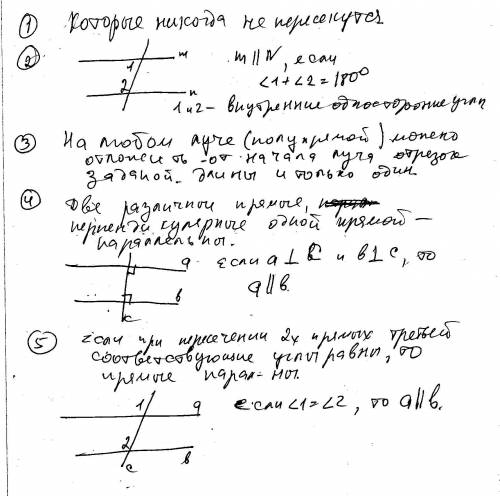 ① Которые никогда не пересекутся
② m ∥ N, если
1 m
∠1+∠2=180°
2 n
1 и 2 – внутренние односторонние углы
③ На любом луче (полупрямой) можно
отложить от начала луча отрезок
заданой длины и только один.
④ Две различной прямые,
перпендикулярные одной прямой –
параллельны.
a если a ⊥ C и в ⊥ c, то
в a ∥ в.
c
⑤ Если при пересечении 2х прямых третьей
соответствующие углы равны, то
прямые парал-ны.
1 a если ∠1=∠2, то a ∥ в.
2
c в